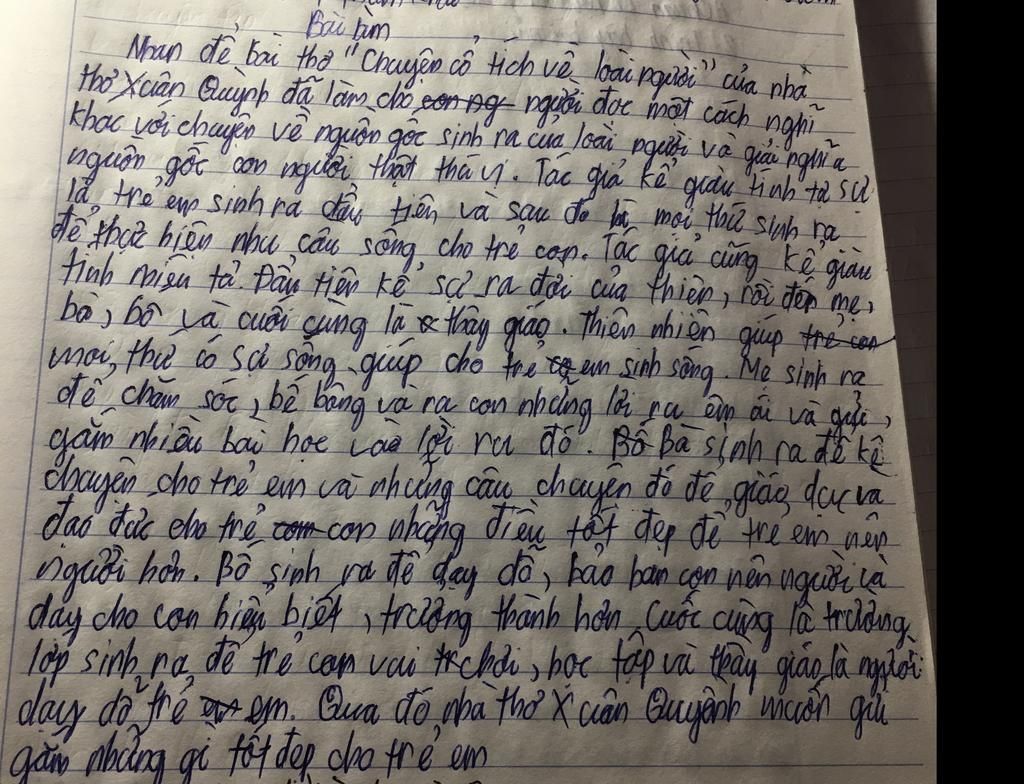 Bài làm
Nhan đề bài thơ "Chuyện cổ tích về loài người" của nhà
thơ Xuân Quỳnh đã làm cho con ng người đọc một cách nghĩ
khác với chuyện về nguồn gốc sinh ra của loài người và giải nghĩa
nguồn gốc con người thật thú vị. Tác giả kể giàu tính tự sự
là trẻ em sinh ra đầu tiên và sau đó mọi thứ sinh ra
để thực hiện nhu cầu sống cho trẻ con. Tác giả cũng kể giàu
tính miêu tả. Đầu tiên kể sự ra đời của thiên, rồi đến mẹ,
bà, bố và cuối cùng là thầy giáo. Thiên nhiên giúp trẻ con
mọi thứ có sự sống, giúp cho trẻ em sinh sống. Mẹ sinh ra
để chăm sóc, bế bồng và ru con những lời ru êm ái và gửi,
gắm nhiều bài học vào lời ru đó. Bố Bà sinh ra để kể
chuyện cho trẻ em và những câu chuyện đó để giáo dục và
đạo đức cho trẻ com con những điều tốt đẹp để trẻ em nên
người hơn. Bố sinh ra để dạy dỗ, bảo ban con nên người và
dạy cho con hiểu biết, trưởng thành hơn. Cuốc cùng là trường
lớp sinh ra để trẻ con vui chơi, học tập và thầy giáo là người
dạy dỗ trẻ em. Qua đó nhà thơ Xuân Quỳnh muốn gửi
gắm những gì tốt đẹp cho trẻ em